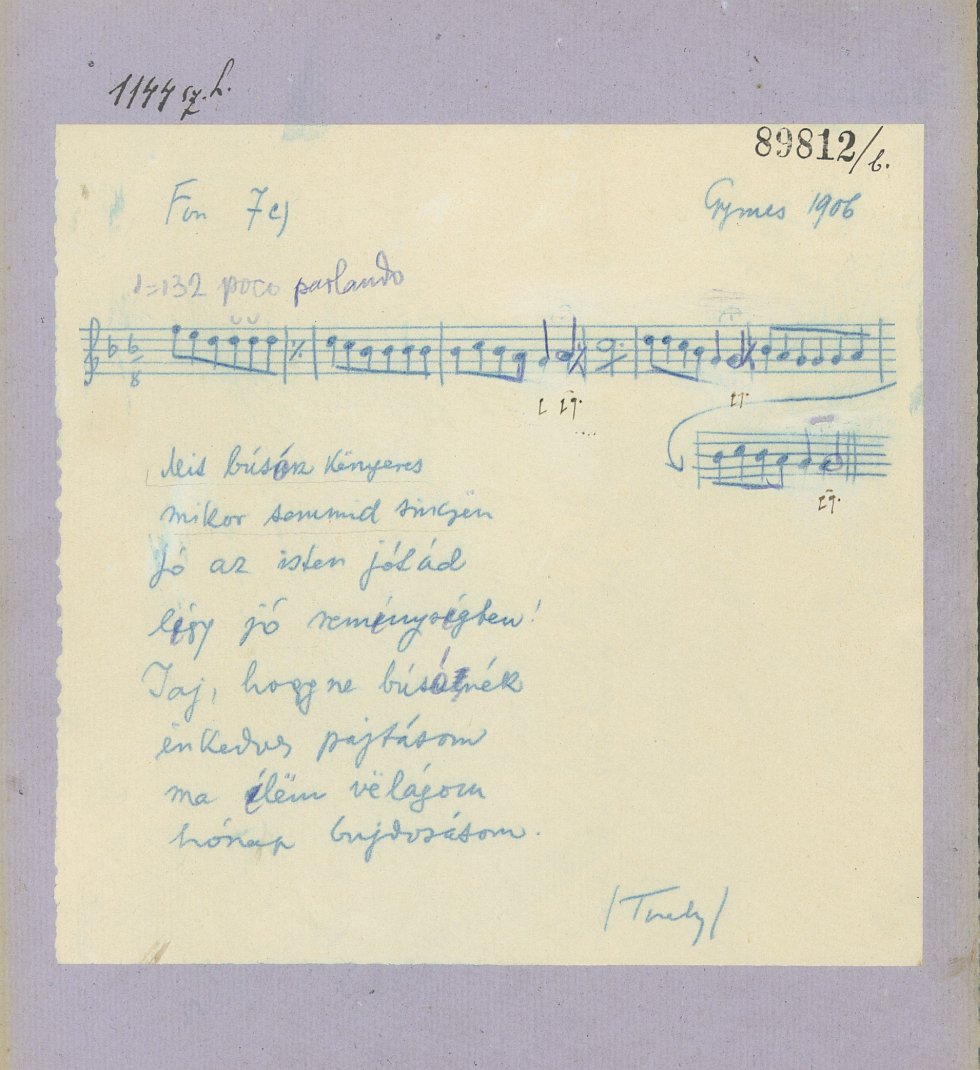 1144 sz. h.
89812/b.
Fon 7c)
Gymes 1906
♩=132 poco parlando
Mit búsósz kënyeres
mikor semmid sinsjën
Jó az isten jót ád
légy jó reménységben!
Jaj, hogy ne búsónék
énkedves pajtásom
ma élëm vëlágom
hónap bujdosásom.